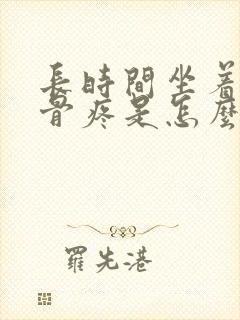 長時間坐着
骨疼是怎麼
羅先港